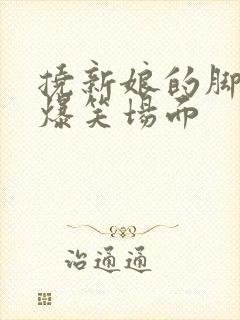 挠新娘的脚
爆笑场面
治通通